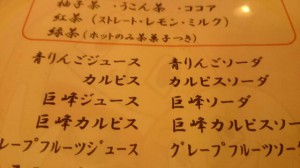 柚子茶 ・うこん茶 ・ココア
紅茶（ストレート・レモン・ミルク）
緑茶（ホットのみ茶菓子つき）
青りんごジュース 青りんごソーダ
カルピス カルピスソーダ
巨峰ジュース 巨峰ソーダ
巨峰カルピス 巨峰カルピスソー
レープフルーツジュース グレープフルーツソー